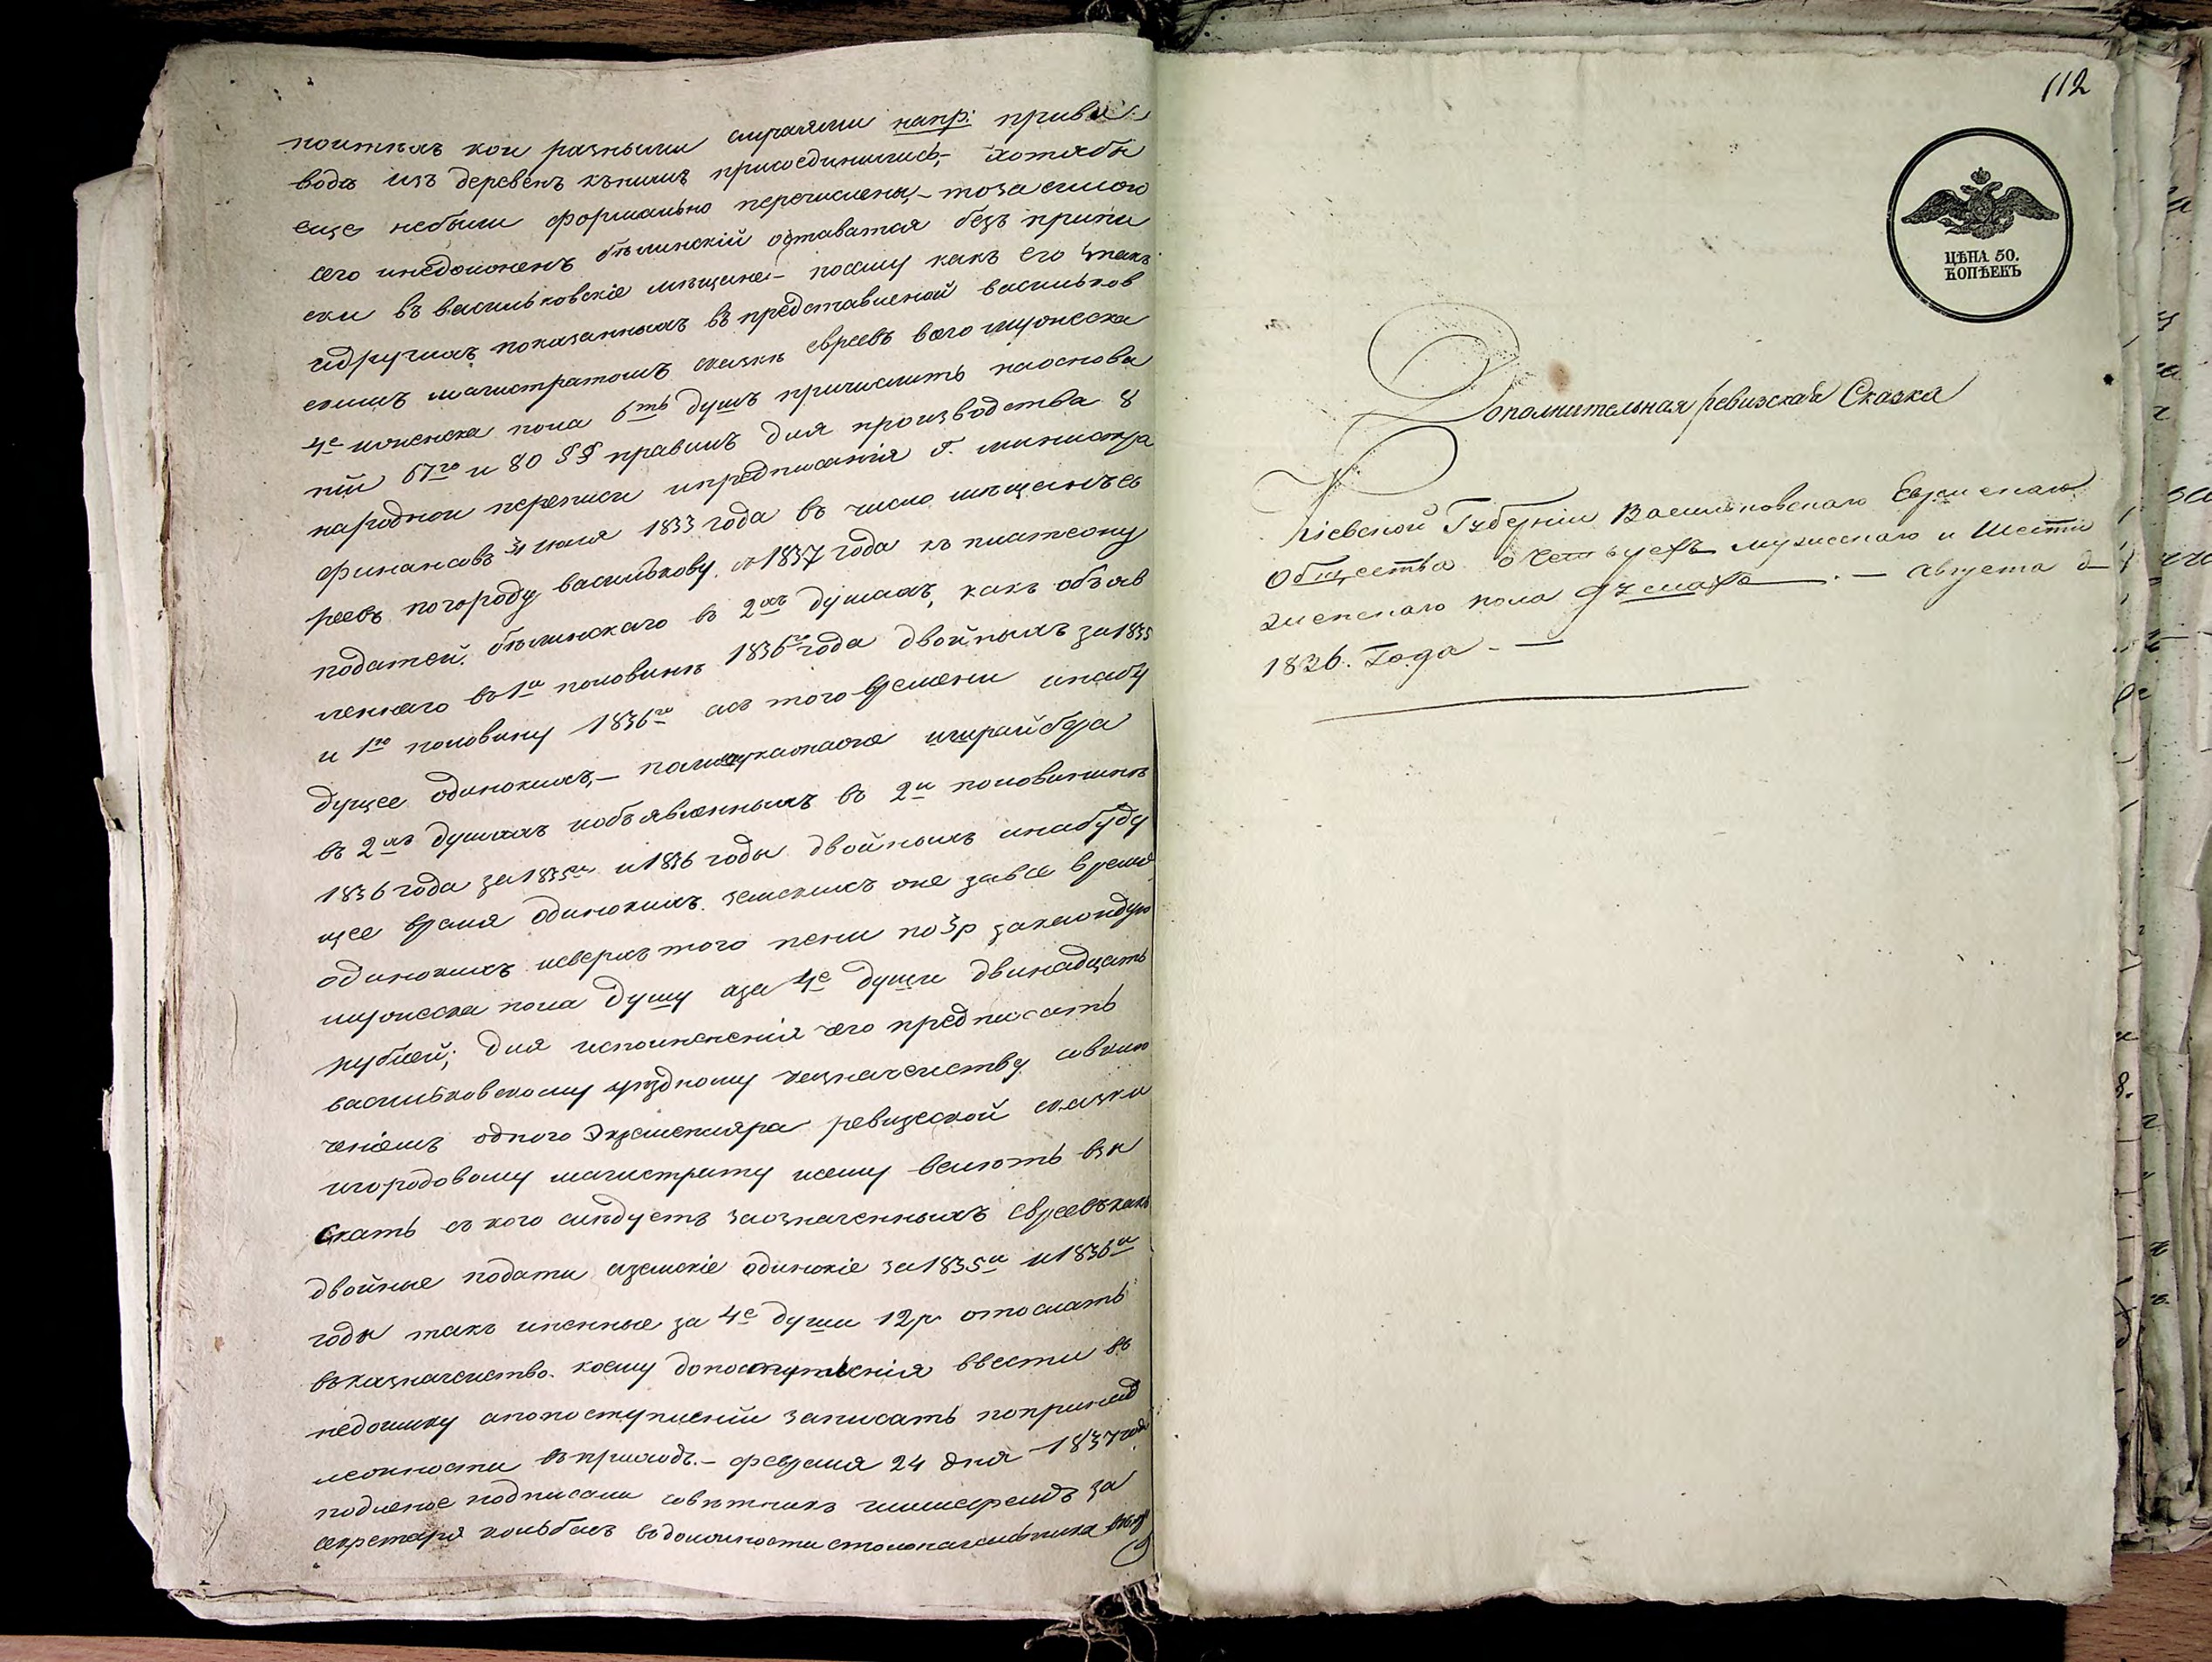 поиткахъ кои разными случаями напр: приво
вода изъ деревень къ нимъ присоединились, хотябы
еще небыли формально перечислены, – то за силою
сего инедолженъ бѣлинскій оставатся безъ припи
ски въ васильковскіе мѣщане – посему какъ его такъ
идругихъ показанныхъ въ представленой васильков
скимъ магистратомъ сказкѣ евреевъ всего мужеска
4е иженска пола 6ть душъ причислить наоснова
ніи 67го и 80 §§ правилъ для производства 8
народной переписи ипредписанія г. министра
финансовъ 31 июля 1833 года въ число мѣщанъ ев
реевъ погороду василькову, съ 1837 года къ платежу
податей. бѣлинскаго въ 2хъ душахъ, какъ объяв
леннаго въ 1й половинѣ 1836го года двойныхъ за 1835
и 1ю половину 1836го асъ того времени инабу
дущее одинокихъ, – ишрайбера
въ 2хъ душахъ иобъявленныхъ въ 2й половинѣ
1836 года за 1835й и 1836 годы двойныхъ инабуду
щее время одинокихъ. земскихъ оне завсе время
одинокихъ исверхъ того пени по 3р закаждую
мужеска пола душу аза 4е души двинадцать
рублей; для исполненія чего предписать
васильковскому уѣздному казначейству совклю
ченіемъ одного экземпляра ревизской сказки
игородовому магистрату исему велѣть взы
скать съ кого слѣдуетъ заозначенныхъ евреевъ какъ
двойные подати иземскіе одинокіе за 1835й и 1836й
годы такъ ипенные за 4е души 12р. отослать
въ казначейство. коему допоступленія ввести въ
недоимку апопоступленіи записать попринад
лежности въ приходъ. – февраля 24 дня 1837 года
подленое подписали совѣтникъ за
секретаря въ должности столоначальника
112
ЦѢНА 50.
КОПѢЕКЪ
Дополнительная ревизская Сказка
Кіевской Губерніи Васильковскаго Еврейскаго
Общества о четырехъ мужескаго и шести
женскаго пола душахъ. – Августа д
1836. Года. –